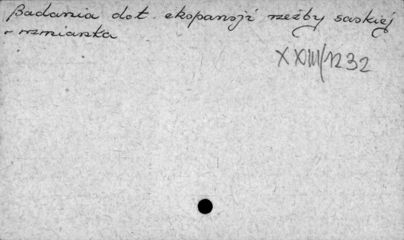 Badania dot. ekspansji rzeźby saskiej
- wzmianka
XXIII/1232